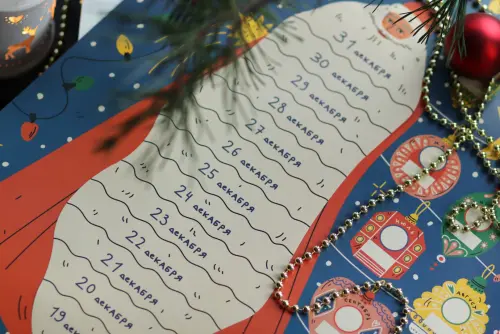 31 декабря
30 декабря
29 декабря
28 декабря
27 декабря
26 декабря
25 декабря
24 декабря
23 декабря
22 декабря
21 декабря
20 декабря
19 декабря